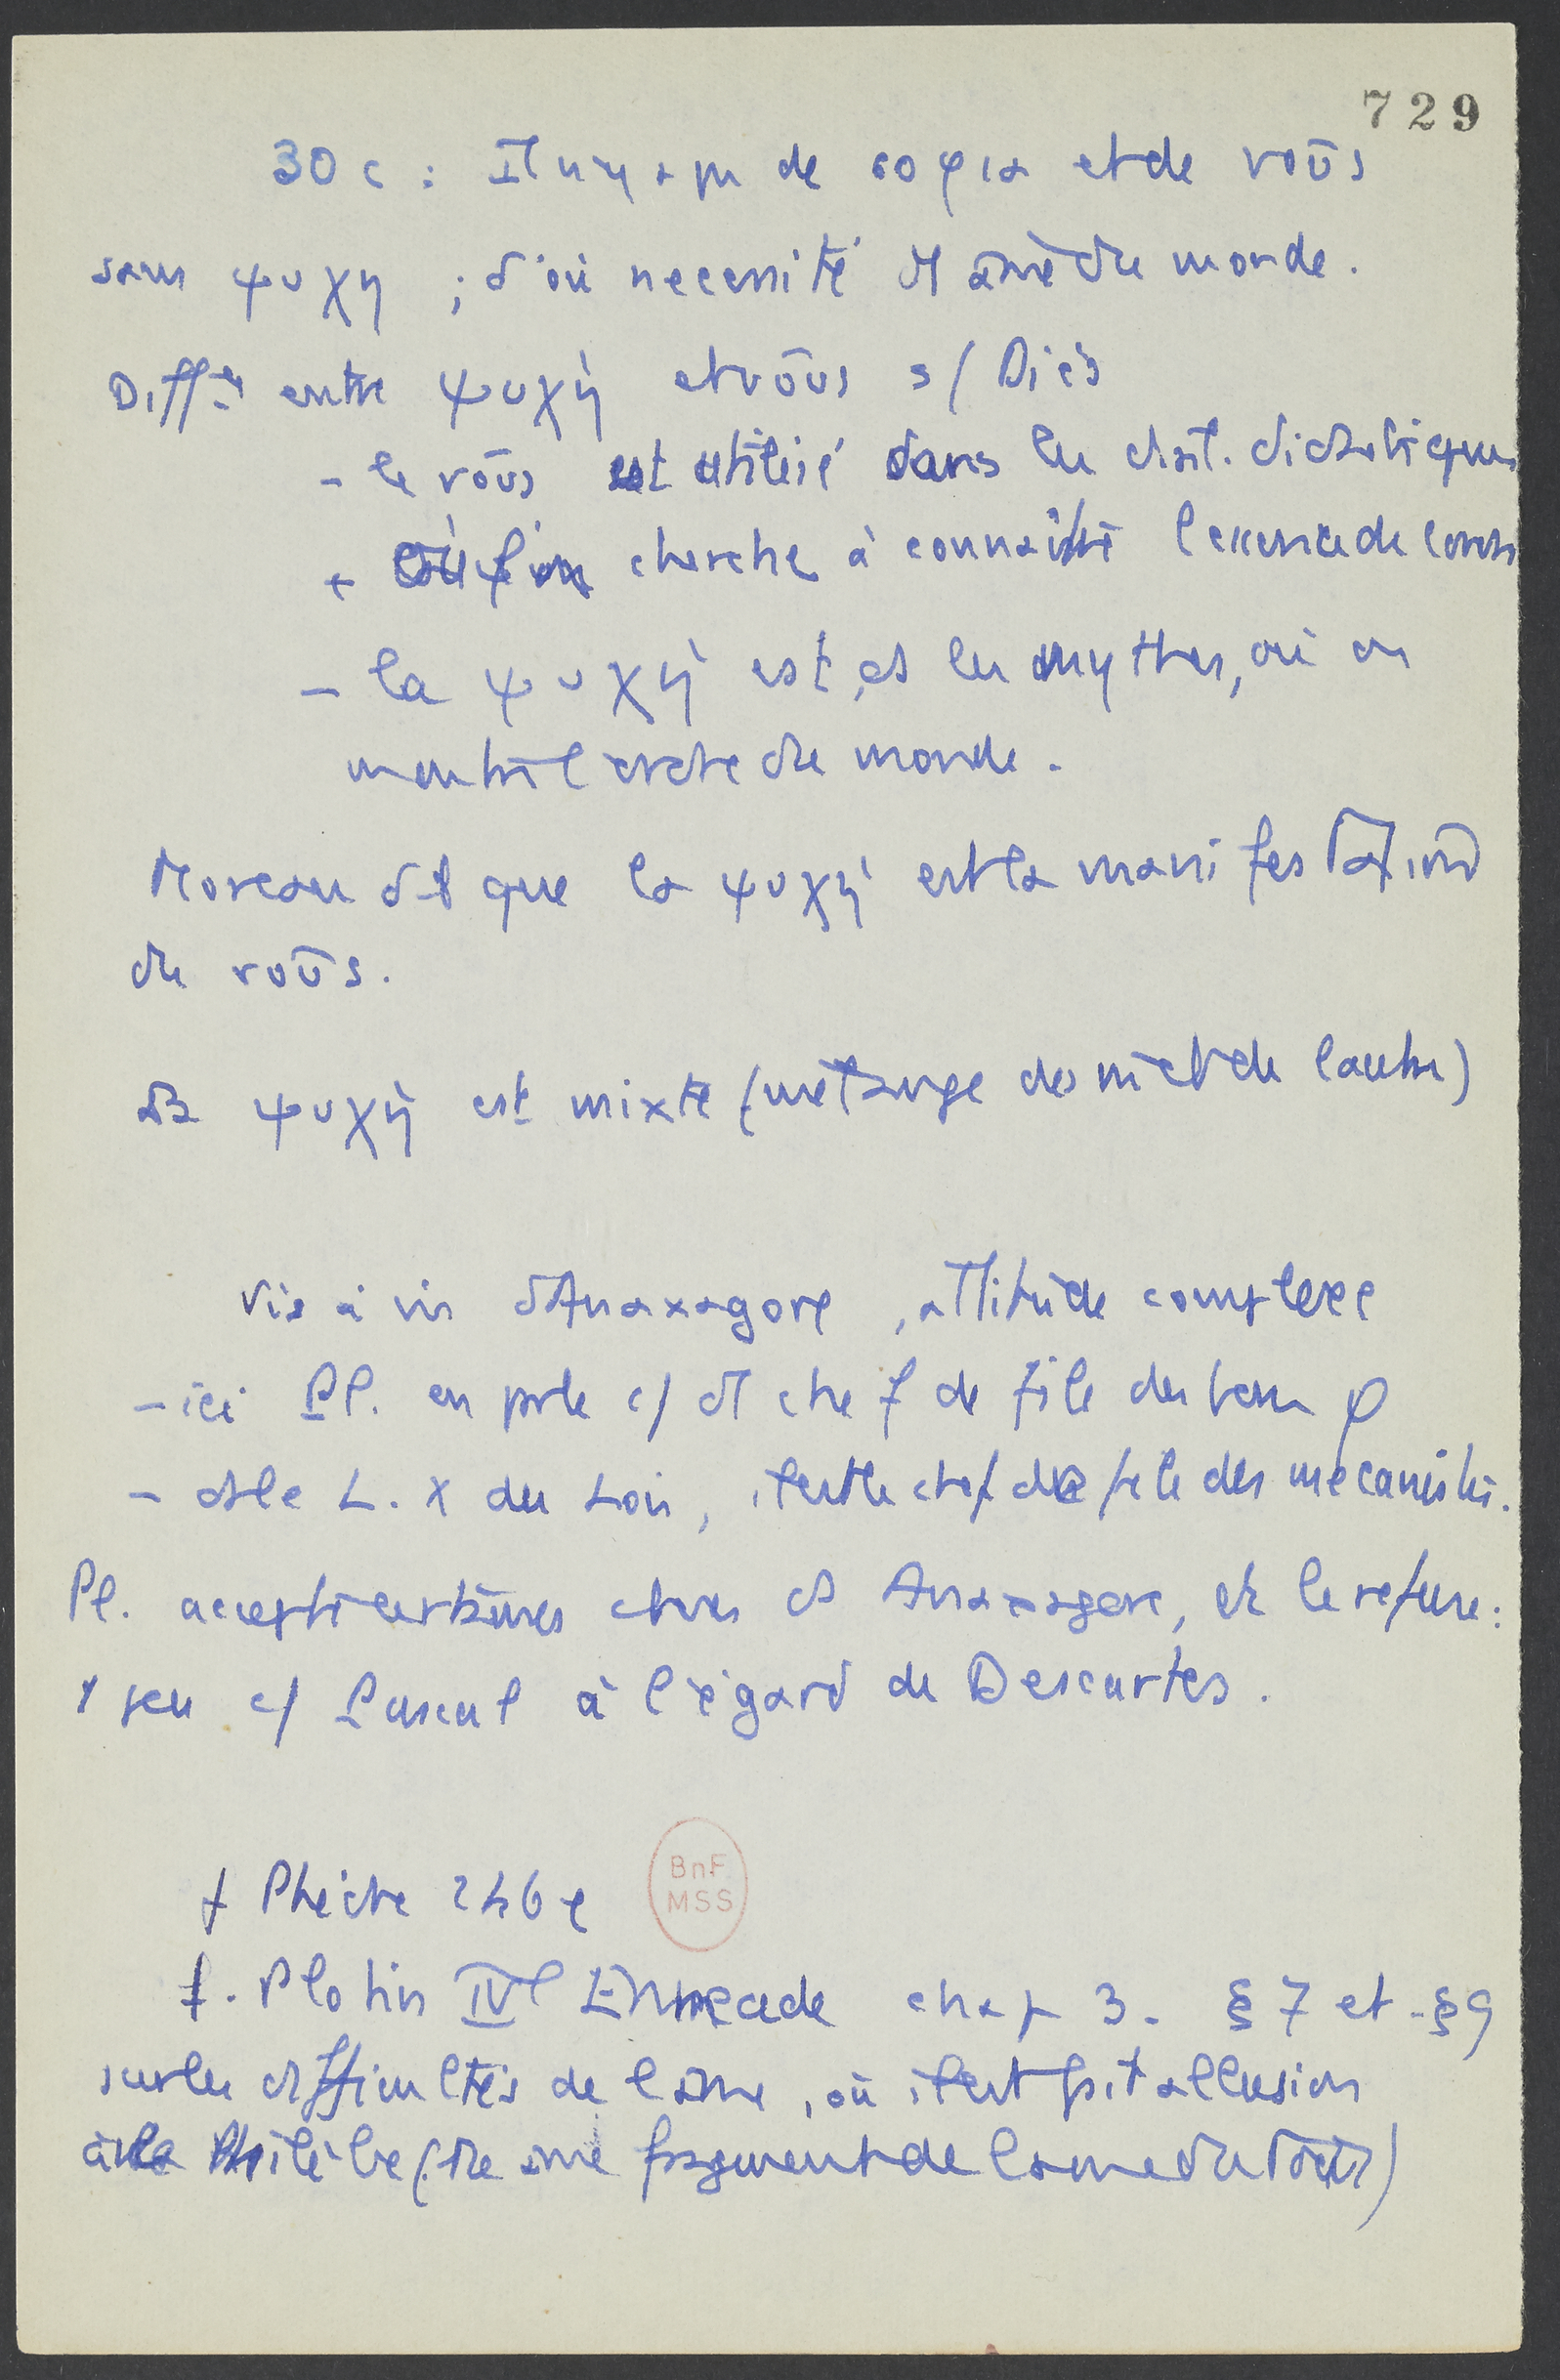 729
30 c : Il n'y a pas de σοφια et de νοῦς
sans ψυχη ; d'où necessité d'1 âme du monde.
Diff ces entre ψυχή et νοῦς s/ Diès
- le νοῦς est utilisé dans les dist. dialectiques
où l'on cherche à connaître l'essence de
- la ψυχή est ds les mythes, où on
montre l'ordre du monde.
Moreau dit que la ψυχή est la manifestation
du νοῦς.
La ψυχή est mixte (mélange de m et de l'autre)
Vis à vis d'Anaxagore, attitude complexe
- ici Pl. en parle c/ d'1 chef de file des φ
- ds le L. X des Lois, il est le chef de file des mécanistes.
Pl. accepte certaines choses ds Anaxagore, et le refuse :
1 peu c/ Pascal à l'égard de Descartes.
f Phèdre 246 e
BnF
MSS
f. Plotin IVe Ennéade chap 3. § 7 et § 9
sur les difficultés de l'âme, où il est fait allusion
à le Philèbe (tte âme fragment de l'âme du tout)